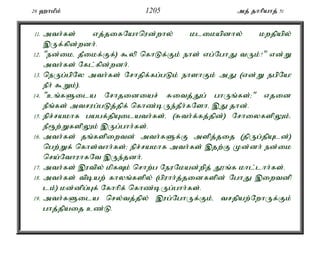 26 ஹாமீம் 1205 அத் தாரியாத் 51
11. அவர்கள் எத்தகையோரென்றால் மடமையினால் மறதியில்
இருக்கின்றனர்.
12. "நன்மை, தீமைக்குக்) கூலி கொடுக்கும் நாள் எப்போது வரும்?" என்று
அவர்கள் கேட்கின்றனர்.
13. நெருப்பிலே அவர்கள் சோதிக்கப்படும் நாளாகும் அது (என்று நபியே!
நீர் கூறும்).
14. "உங்களுடைய சோதனையைச் சுவைத்துப் பாருங்கள்;" எதனை
நீங்கள் அவசரப்படுத்திக் கொண்டிருந்தீர்களோ, இது தான்.
15. நிச்சயமாக பயபக்தியுடையவர்கள், (சுவர்க்கத்தின்) சோலைகளிலும்,
நீரூற்றுகளிலும் இருப்பார்கள்.
16. அவர்கள் தங்களிறைவன் அவர்களுக்கு அளித்ததை (திருப்தியுடன்)
பெற்றுக் கொள்வார்கள்; நிச்சயமாக அவர்கள் இதற்கு முன்னர் நன்மை
செய்வோராகவே இருந்தனர்.
17. அவர்கள் இரவில் மிகவும் சொற்ப நேரமேயன்றித் தூங்க மாட்டார்கள்.
18. அவர்கள் விடியற் காலங்களில் (பிரார்த்தனைகளின் போது இறைவனி
டம்) மன்னிப்புக் கோரிக் கொண்டிருப்பார்கள்.
19. அவர்களுடைய செல்வத்தில் இரப்போருக்கும், வசதியற்றோருக்கும்
பாத்தியதை உண்டு.